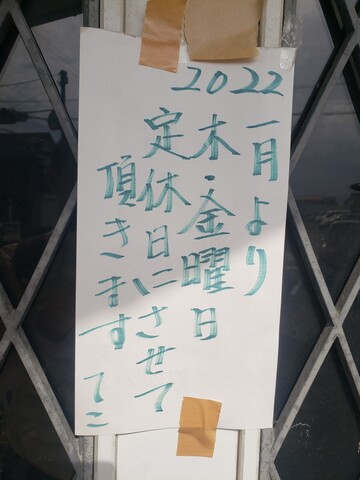 2022
一月より
木・金曜日
定休日にさせて
頂きます てこ